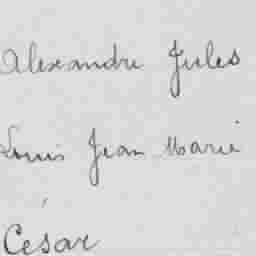 Alexandre Jules
Louis Jean Marie
César